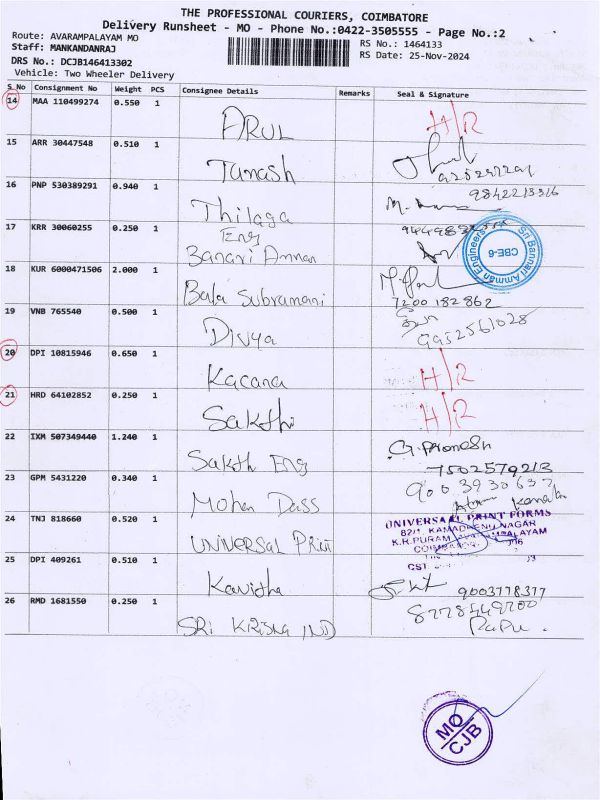 THE PROFESSIONAL COURIERS, COIMBATORE
Delivery Runsheet - MO - Phone No.:0422-3505555 - Page No.:2
Route: AVARAMPALAYAM MO
RS No.: 1464133
Staff: MANKANDANRAJ
RS Date: 25-Nov-2024
DRS No.: DCJB146413302
Vehicle: Two Wheeler Delivery
S.No Consignment No Weight PCS Consignee Details Remarks Seal & Signature
14 MAA 110499274 0.550 1 ARUL H/R
15 ARR 30447548 0.510 1 Tamash
16 PNP 530389291 0.940 1 Thilaga 9842213316
17 KRR 30060255 0.250 1 Eng
Banari Amman
Sri Bannari Amman Engineers
CBE-6
18 KUR 6000471506 2.000 1 Bala Subramani 7200 182 862
19 VNB 765540 0.500 1 Divya திவ்யா 9952561028
20 DPI 10815946 0.650 1 Kacana H/R
21 HRD 64102852 0.250 1 Sakthi H/R
22 IXM 507349440 1.240 1 Sakth Eng G. Pronesh
7502579213
23 GPM 5431220 0.340 1 Mohan Dass 9003930637
24 TNJ 818660 0.520 1 UNIVERSAL Print
UNIVERSAL PRINT FORMS
82/1, KAMADHENU NAGAR
K.R.PURAM
CST
25 DPI 409261 0.510 1 Kavitha 9003778377
26 RMD 1681550 0.250 1 SRI KRISNA IND 8778449200
Papu.
MO
CJB